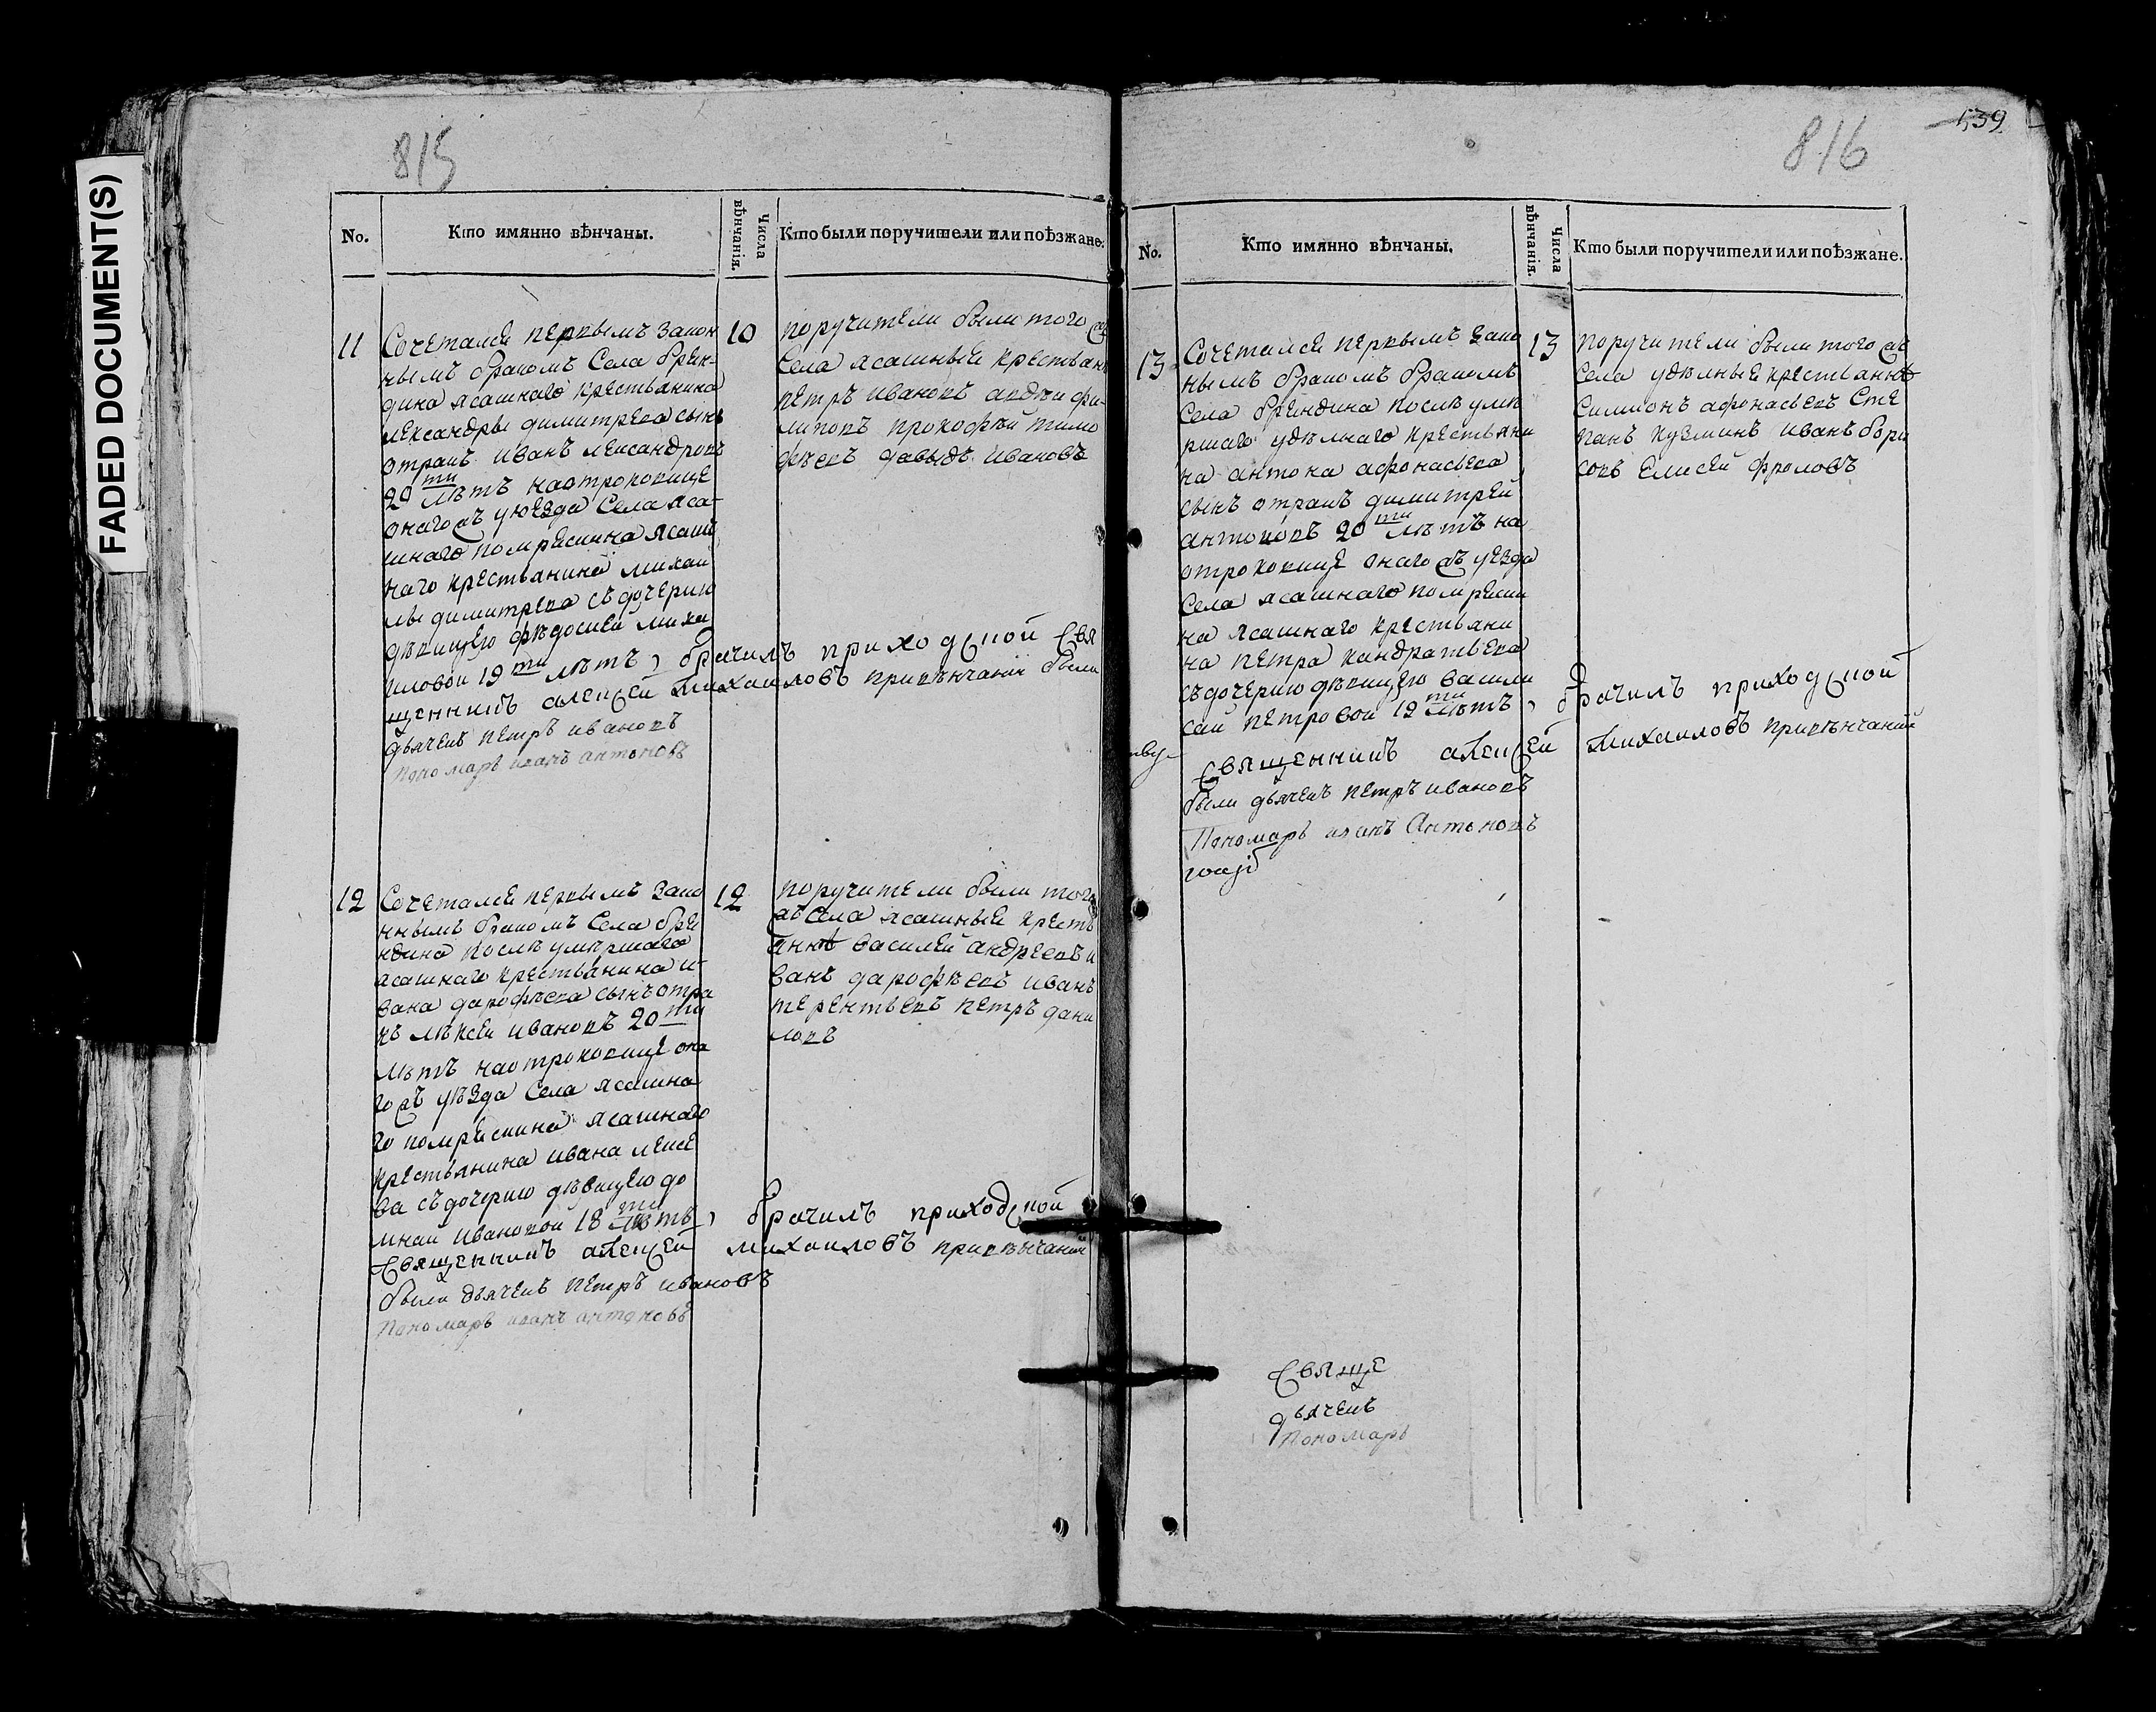 FADED DOCUMENT(S)
815
No.
Кто имянно вѣнчаны.
Числа вѣнчанія.
Кто были поручители или поѣзжане.
11
Сочетался первымъ закон
нымъ бракомъ Села брен-
дина ясашнаго крестьянина
лександры димитрева сынъ
отракъ иванъ лександровъ
20 ти лѣтъ наотроковице
онагожъ уюезда Села яса-
шнаго помряскина ясаш
наго крестьянина михаи
лы димитрева съдочерию
дѣвицею фѣдосией миха
иловой 19 ти лѣтъ, брачилъ приходской Свя
щенникъ алексей Михаиловъ привѣнчании были
дьячекъ петръ ивановъ
пономарь иванъ антоновъ
10
поручители были того жъ
Села ясашные крестьянѣ
петръ ивановъ авдѣи фи-
липовъ прокофѣй тимо
фѣевъ давыдъ ивановъ
12
Сочетался первымъ зако
ннымъ бракомъ Села бре
ндина послѣ умѣршаго
ясашнаго крестьянина и-
вана дарофѣева сынъ отра
къ лѣксей ивановъ 20 ти
лѣтъ наотроковице она
гожъ уѣзда Села ясашна
го помряскина ясашнаго
крестьянина ивана лексе
ва съдочерию дѣвицею до
мнаи ивановой 18 ти лѣтъ, брачилъ приходской
Священникъ алексей михаиловъ привѣнчаний
были дьячекъ петръ ивановъ
пономарь иванъ антоновъ
12
поручители были того
жъ Села ясашные кресть
янѣ василей андреевъ и
ванъ дарофѣевъ иванъ
терентьевъ петръ дани
ловъ
816
139
No.
Кто имянно вѣнчаны.
Числа вѣнчанія.
Кто были поручители или поѣзжане.
13
Сочетался первымъ зако
нымъ бракомъ бракомъ
Села брендина послѣ умѣ
ршаго удѣлнаго крестьяни
на антона афонасьева
сынъ отракъ димитрей
антоновъ 20 ти лѣтъ на
отроковице онагожъ уезда
Села ясашнаго помряски
на ясашнаго крестьяни
на петра кандратьева
съдочерию дѣвицею васили
сай петровой 19 ти лѣтъ, брачилъ приходской
Священникъ алексей Михаиловъ привѣнчаний
были дьячекъ петръ ивановъ
Пономарь иванъ Антоновъ
13
поручители были того жъ
Села удѣлные крестьянѣ
Симионъ афонасьевъ Сте
панъ кузминъ иванъ бори
совъ Елисей фроловъ
Свяще
дьячекъ
Пономарь